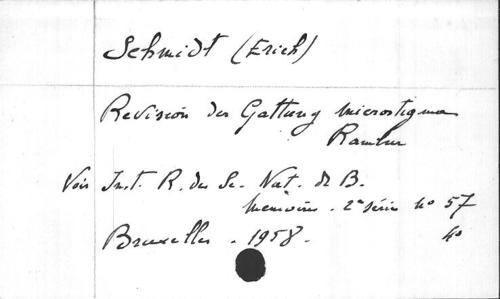 Schmidt (Erich)
Revision der Gattung Microstigma
Rambur
Voir Inst. R. des Sc. Nat. de B.
Mémoires. 2e série no 57
Bruxelles. 1958. 4o